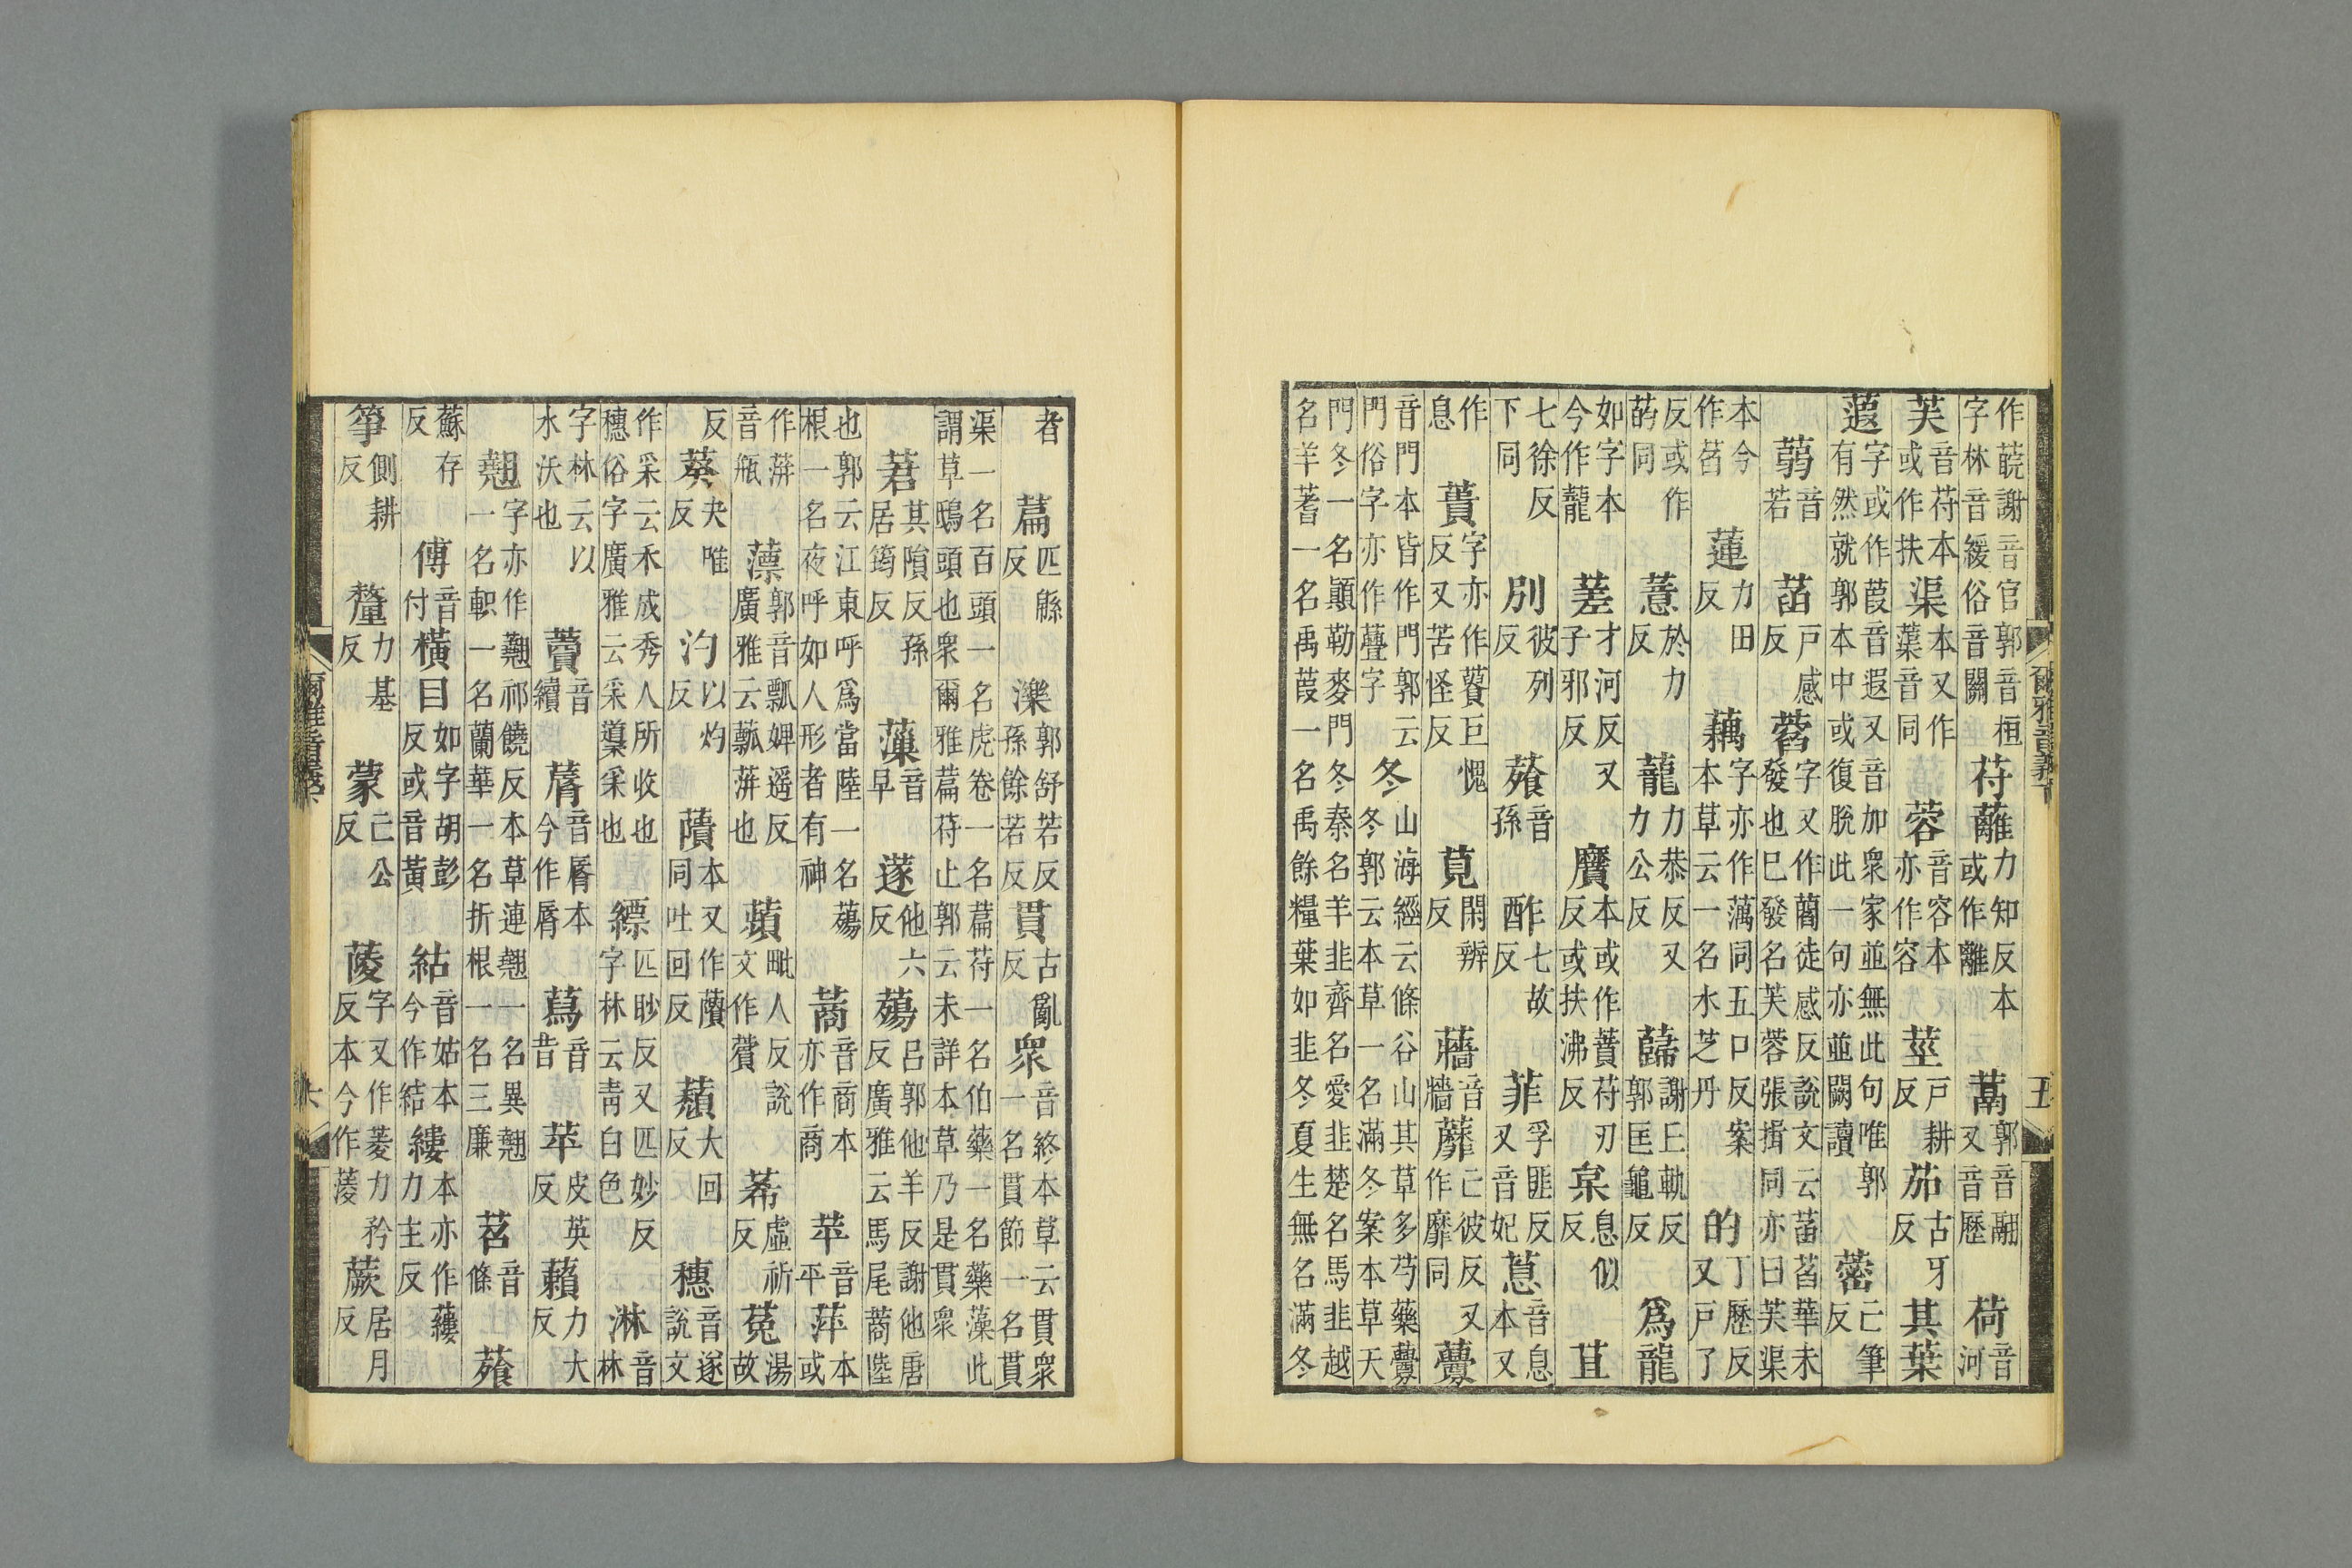 作䓣謝音官郭音桓苻蘺力知反本或作離䓪郭音翮又音歷荷音河
字林音緩俗音關
芙音苻本或作扶渠本又作蕖音同蓉音容本亦作容莖戸耕反茄古牙反其葉
蕸字或作葭音遐又音加衆家並無此句唯郭有然就郭本中或復脫此一句亦並闕讀蔤亡筆反
蒻音若菡戸感反萏字又作䕘徒感反說文云菡萏華未發也巳發名芙蓉張揖同亦曰芙渠
本今作萏蓮力田反藕字亦作䕃同五口反案本草云一名水芝丹的丁歷反又戸了
反或作菂同薏於力反蘢力恭反又力公反蘬謝丘軌反郭匡龜反爲龍
如字本今作蘢蒫才河反又子邪反黂本或作蕡苻刃反或扶沸反枲息似反苴
七徐反下同別彼列反蕵音孫酢七故反菲孚匪反又音妃蒠音息本又
作息蕢字亦作蕢巨愧反又苦怪反莧閑辨反蘠音牆蘼亡彼反又作靡同虋
音門本皆作門郭云門俗字亦作虋字冬山海經云條谷山其草多芍藥虋冬郭云本草一名滿冬案本草天
門冬一名顚勒麥門冬秦名羊韭齊名愛韭楚名馬韭越名羊蓍一名禹葭一名禹餘糧葉如韭冬夏生無名滿冬
爾雅音義下
五
者萹匹緜反濼郭舒若反孫餘若反貫古亂反衆音終本草云貫衆一名貫節一名貫
渠一名百頭一名虎卷一名萹苻一名伯藥一名藥藻此謂草鴟頭也衆爾雅萹苻止郭云未詳本草乃是貫衆
莙其隕反孫居筠反薻音早蓫他六反薚呂郭他羊反謝他唐反廣雅云馬尾蔏陸
也郭云江東呼爲當陸一名薚根一名夜呼如人形者有神蔏音商本亦作商苹音平萍本或
作蓱音瓶薸郭音瓢婢遥反廣雅云薸蓱也蘋毗人反說文作薲莃虛祈反菟湯故
反葵夬唯反汋以灼反蘈本又作蘈同吐回反藬大回反穗音遂說文
作采云禾成秀人所收也穗俗字廣雅云采䆃采也縹匹眇反又匹妙反字林云靑白色淋音林
字林云以水沃也藚音續蓐音脣本今作脣蕮音昔苹皮英反藾力大反
翹字亦作翹祁饒反本草連翹一名異翹一名軹一名蘭華一名折根一名三廉苕音條蕵
蘇存反傅音付橫目如字胡彭反或音黃結音姑本今作結縷本亦作蔞力主反
箏側耕反釐力基反蒙亡公反蔆字又作菱力矜反本今作蓤蕨居月反
爾雅音義
六